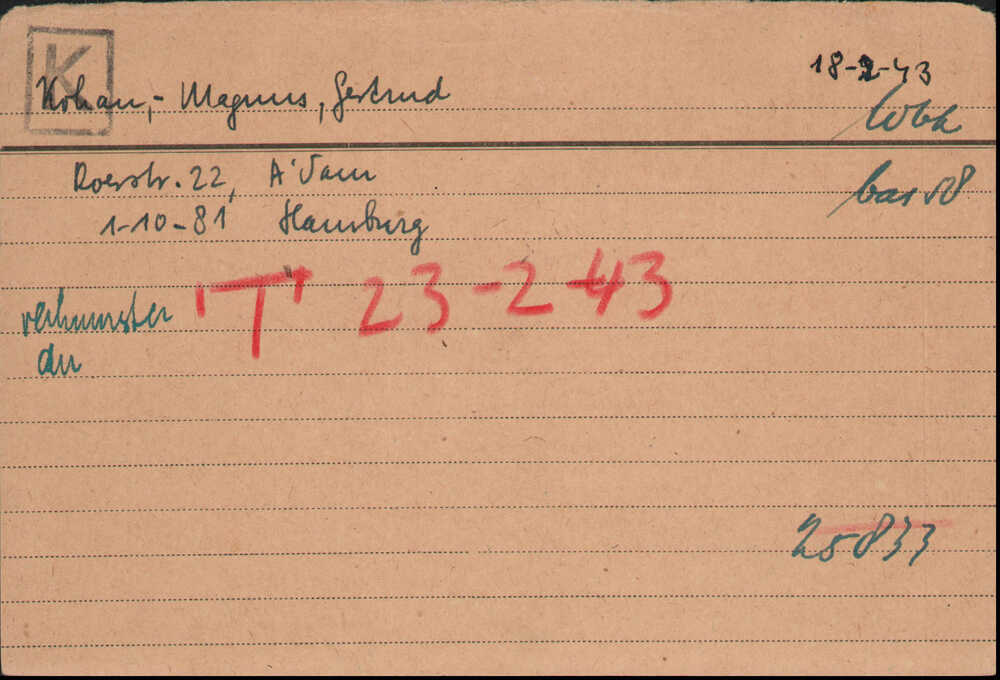 K
18-2-43
Kohan,- Magnus, Gertrud
Wbk
Roerstr. 22, A'dam
bar 58
1-10-81 Hamburg
"T" 23-2-43
du
25833